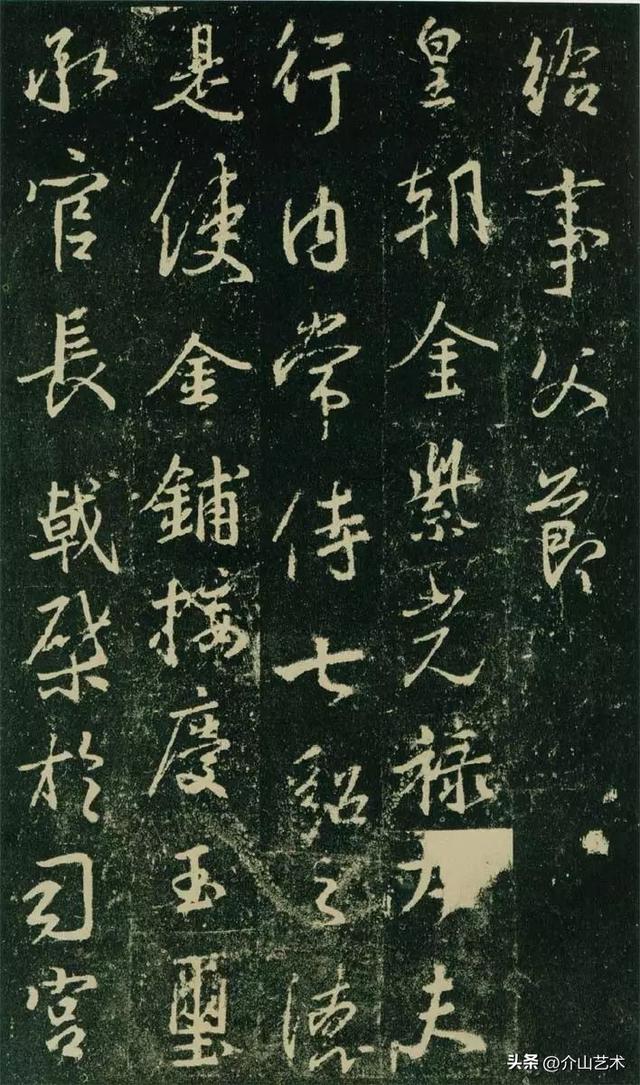 給事父節
皇朝金紫光祿大夫
行內常侍七貂之德
是使金鋪接慶玉璽
承官長戟棨於司宮
头条 @介山艺术